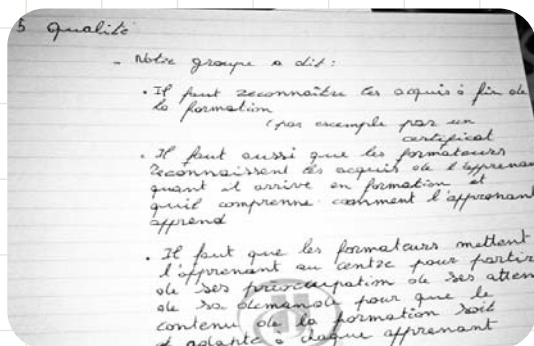 5 qualité
- Notre groupe a dit :
• Il faut reconnaître les acquis à fin de
la formation
(par exemple par un
certificat
• Il faut aussi que les formateurs
reconnaissent les acquis de l'apprenan
quant il arrive en formation et
qu'il comprenne comment l'apprenant
apprend
• Il faut que les formateurs mettent
l'apprenant au centre pour partir
de ses préoccupation de ses atten
de sa demande pour que le
contenu de la formation soit
adapté à chaque apprenant